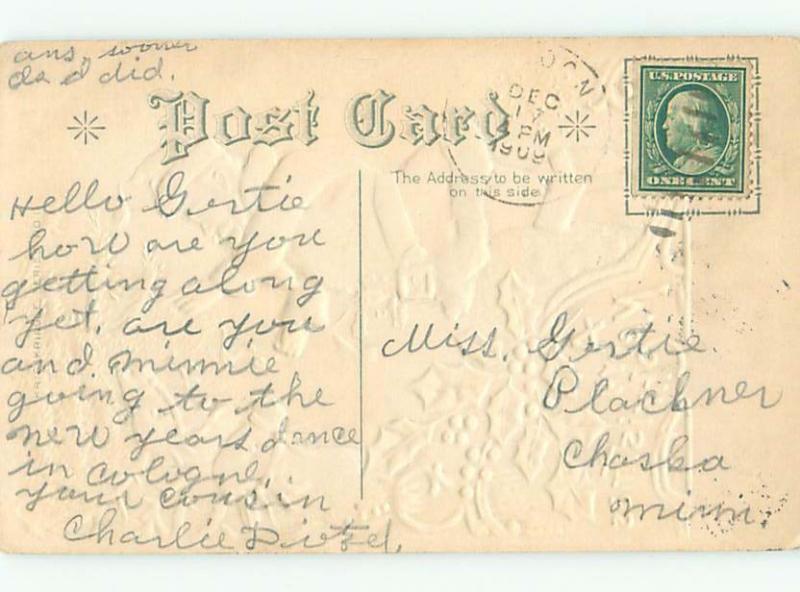 ans, sooner
da d did.
Post Card
DEC
17
PM
1909
U.S. POSTAGE
ONE CENT
The Address to be written
on this side
Hello Gertie
how are you
getting along
yet. are you
and. Minnie
going to the
new years dance
in Cologne.
your cousin
Charlie
Miss. Gertie.
Plackner
Chaska
Minn.